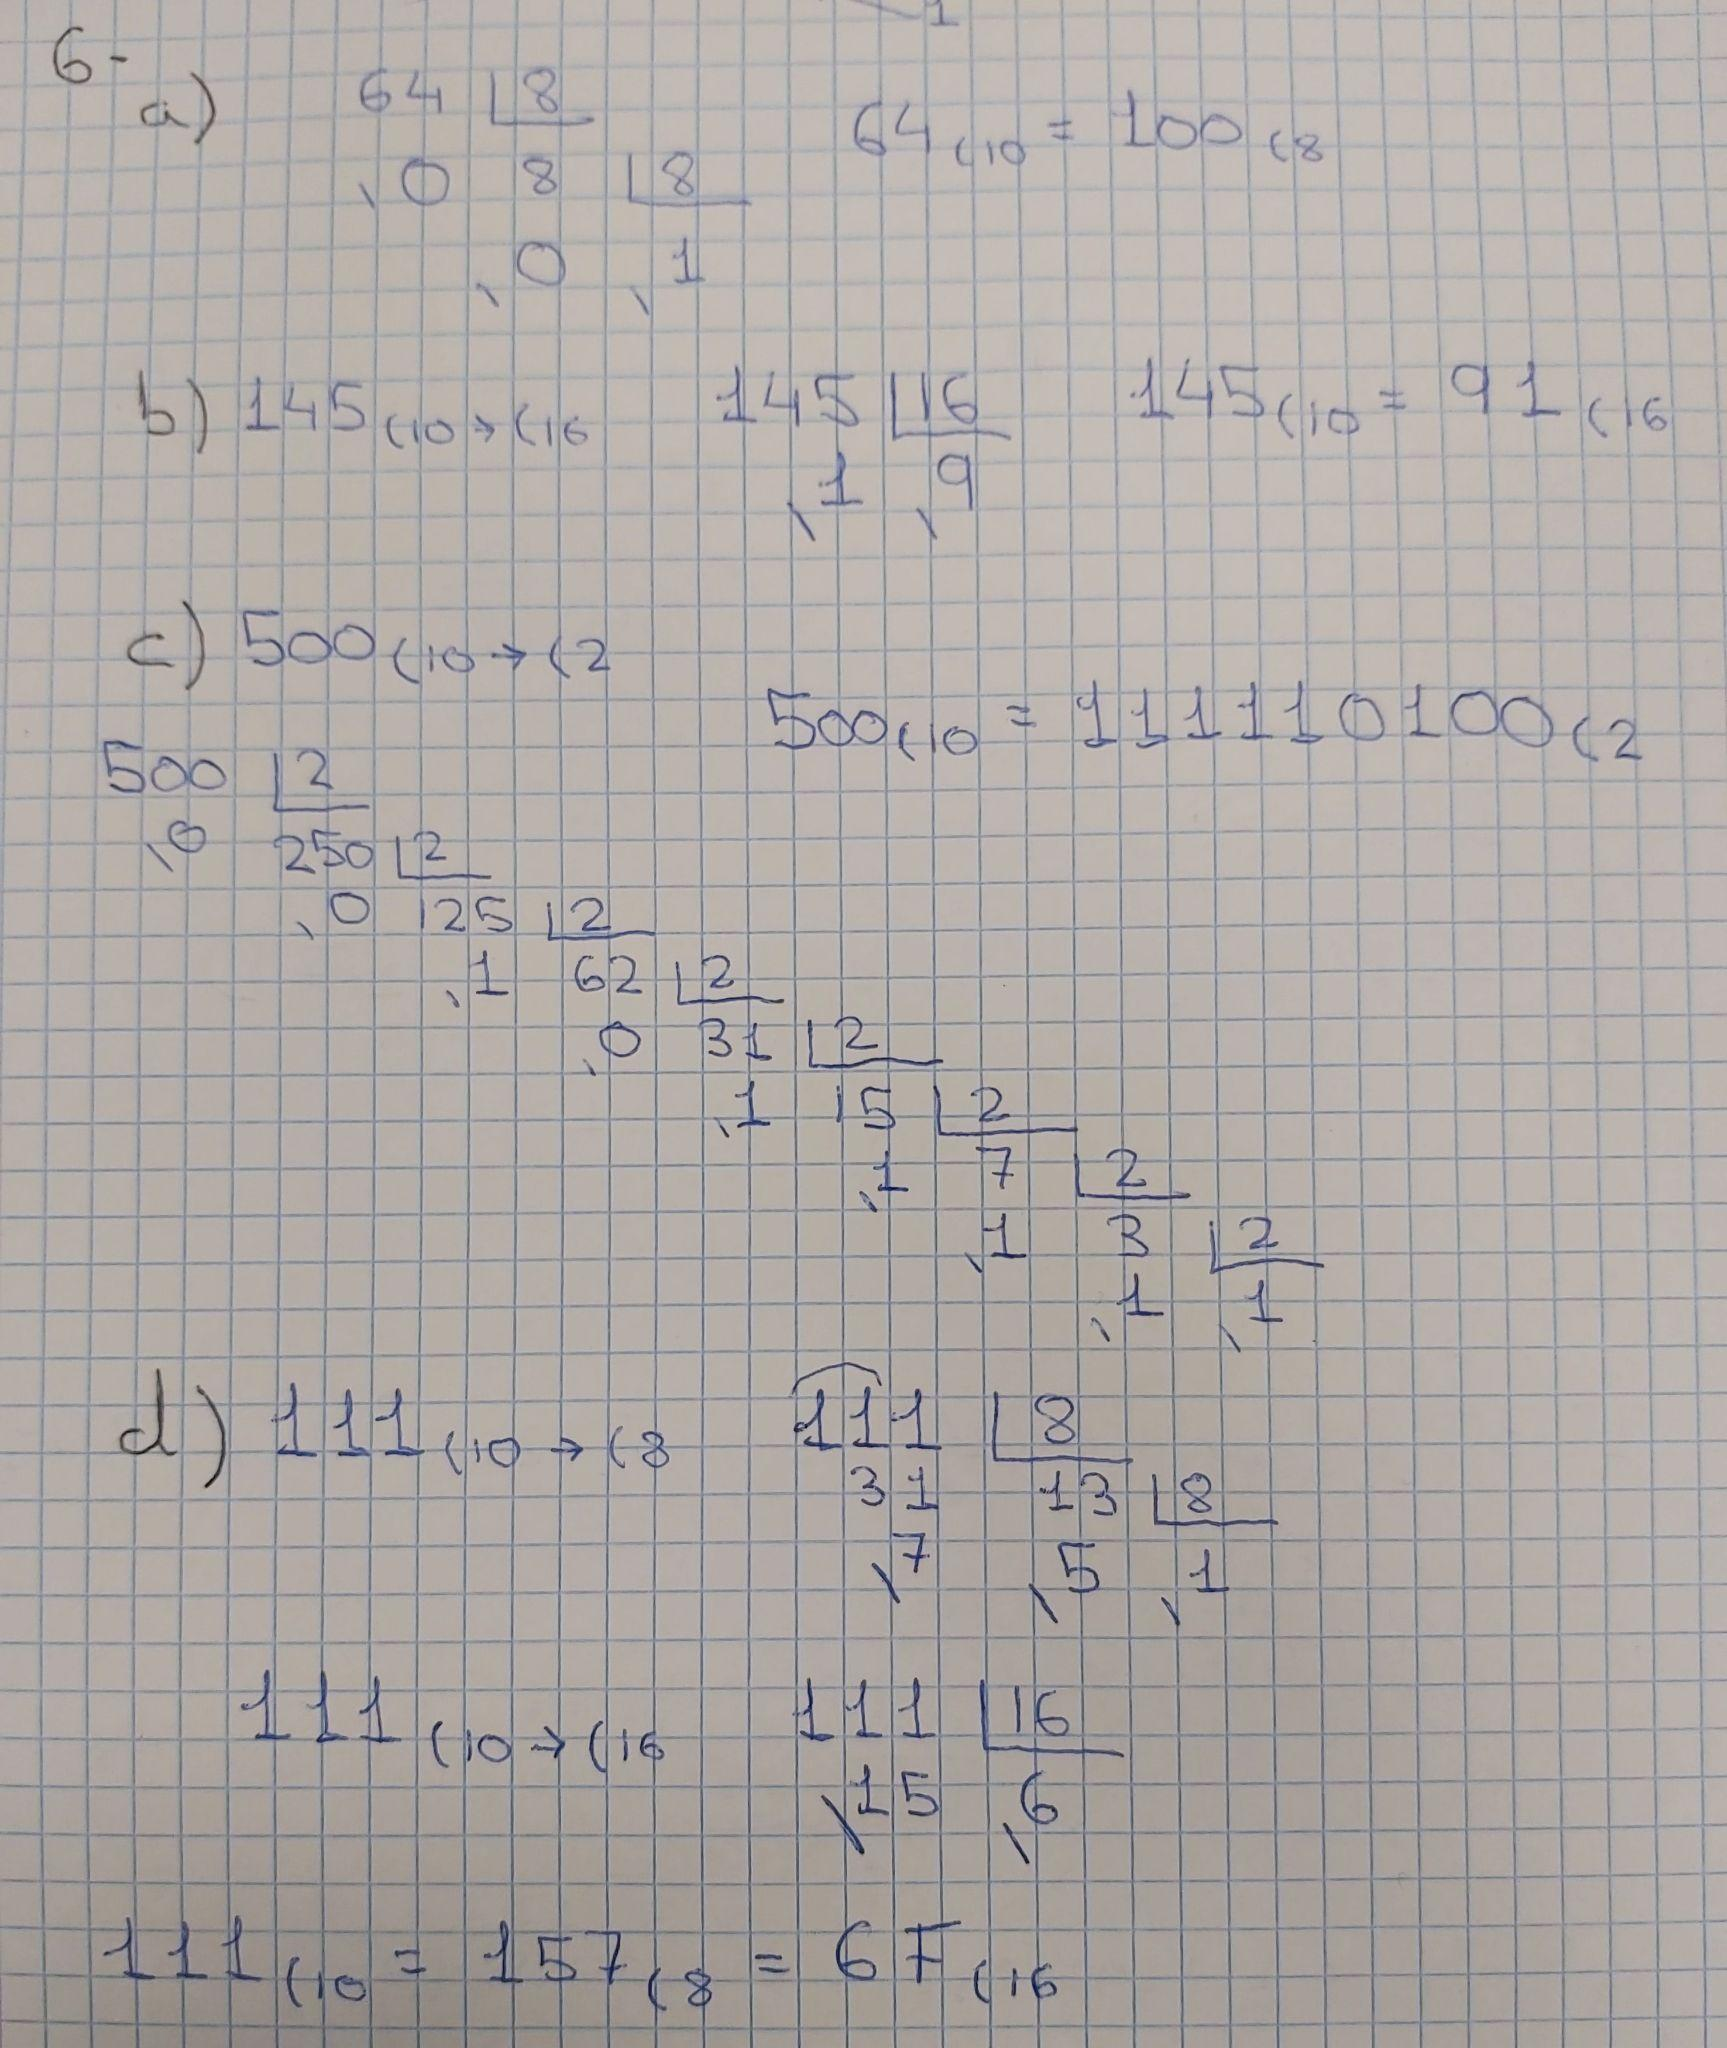 6-
a) 64 8 64(10 = 100(8
,0 8 8
,0 ,1
b) 145(10→(16 145 16 145(10 = 91(16
,1 ,9
c) 500(10→(2
500(10 = 111110100(2
500 2
,0 250 2
,0 125 2
,1 62 2
,0 31 2
,1 15 2
,1 7 2
,1 3 2
,1 ,1
d) 111(10→(8 111 8
31 13 8
,7 ,5 ,1
111(10→(16 111 16
,15 ,6
111(10 = 157(8 = 6F(16